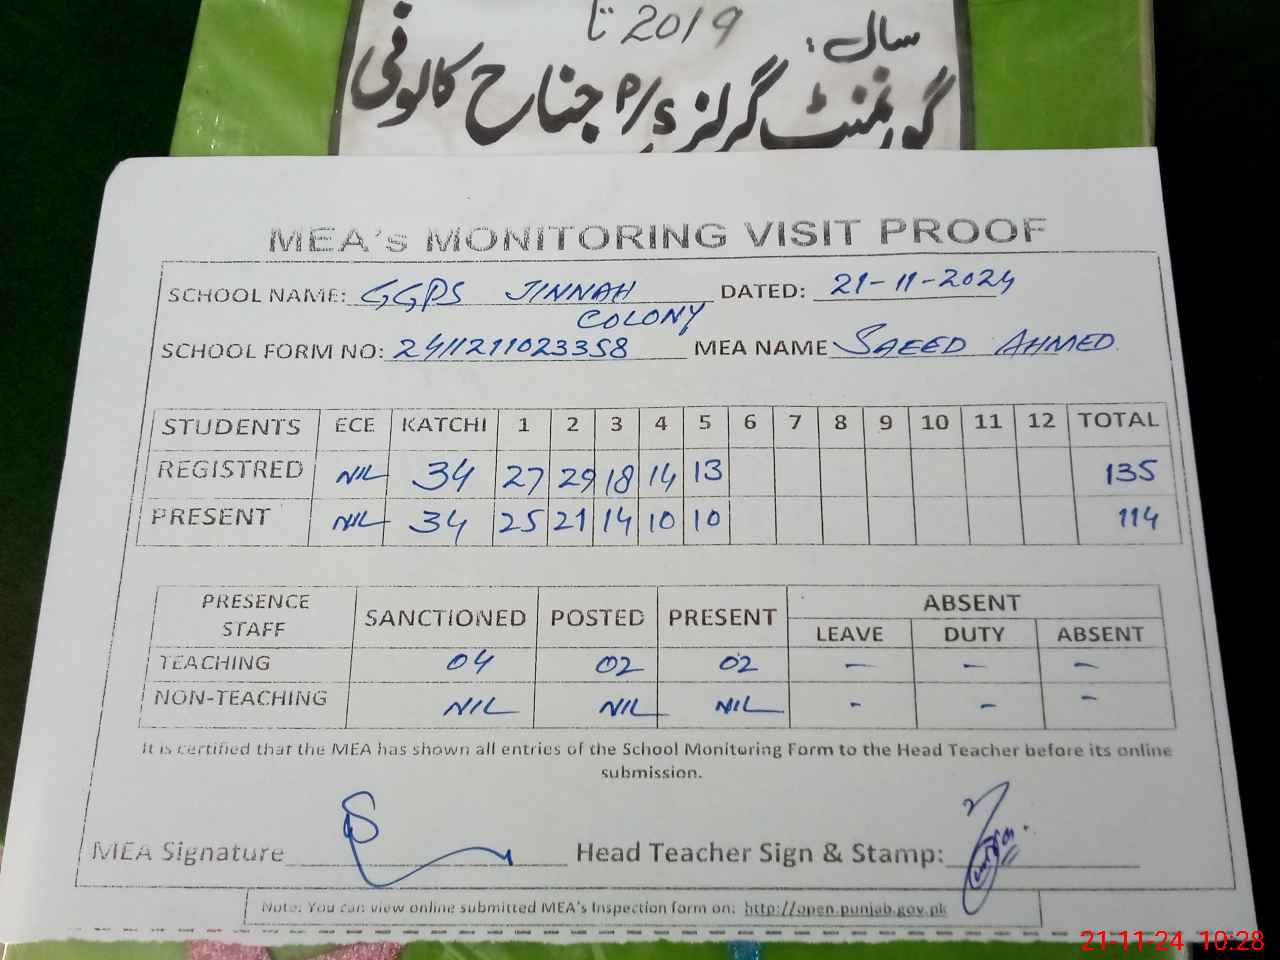 سال: 2019 تا
گورنمنٹ گرلز P/S جناح کالونی
MEA's MONITORING VISIT PROOF
SCHOOL NAME: GGPS JINNAH COLONY DATED: 21-11-2024
SCHOOL FORM NO: 2411211023358 MEA NAME SAEED AHMED.
STUDENTS ECE KATCHI 1 2 3 4 5 6 7 8 9 10 11 12 TOTAL
REGISTRED NIL 34 27 29 18 14 13 135
PRESENT NIL 34 25 21 14 10 10 114
PRESENCE STAFF SANCTIONED POSTED PRESENT ABSENT
LEAVE DUTY ABSENT
TEACHING 04 02 02 - - -
NON-TEACHING NIL NIL NIL - - -
It is certified that the MEA has shown all entries of the School Monitoring Form to the Head Teacher before its online
submission.
MEA Signature Head Teacher Sign & Stamp:
Note: You can view online submitted MEA's Inspection form on: http://open.punjab.gov.pk
21-11-24 10:28